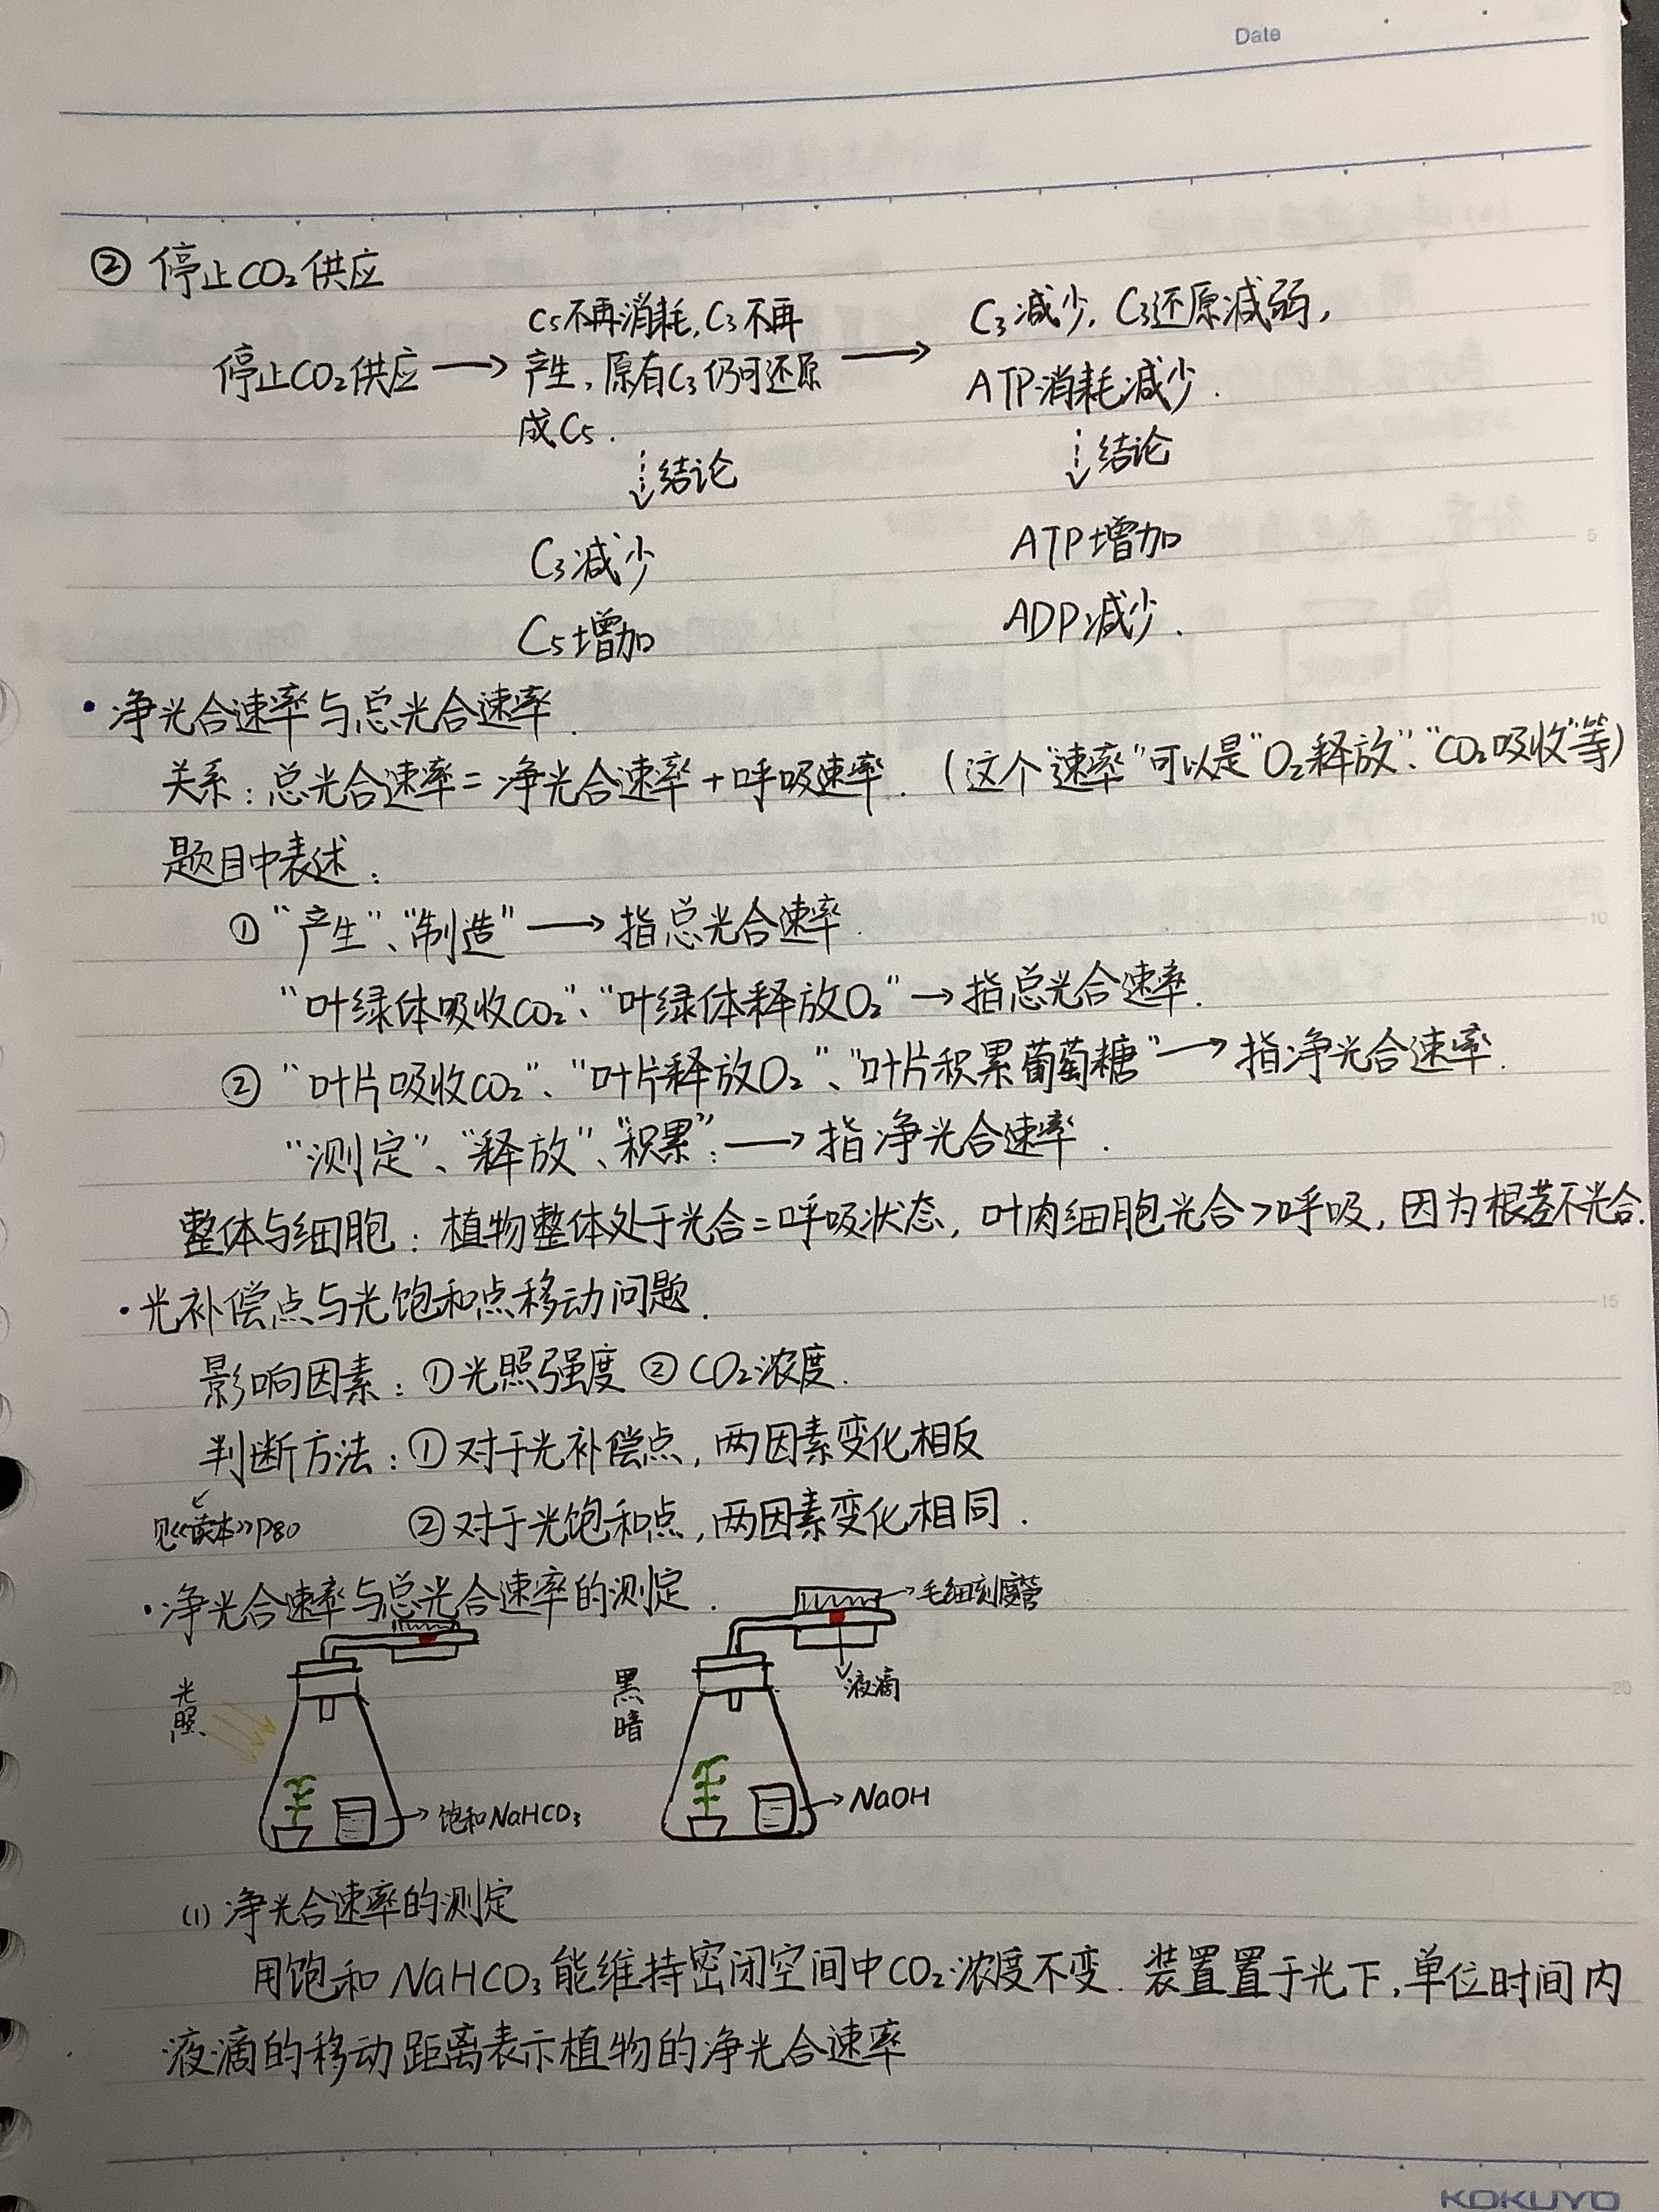 Date
② 停止CO₂供应
停止CO₂供应 → C₅不再消耗,C₃不再产生,原有C₃仍可还原成C₅. → C₃减少,C₃还原减弱,ATP消耗减少.
结论 结论
C₃减少 ATP增加
C₅增加 ADP减少.
·净光合速率与总光合速率.
关系:总光合速率=净光合速率+呼吸速率.(这个"速率"可以是"O₂释放"、"CO₂吸收"等)
题目中表述:
①"产生"、"制造"→指总光合速率.
"叶绿体吸收CO₂"、"叶绿体释放O₂"→指总光合速率.
②"叶片吸收CO₂"、"叶片释放O₂"、"叶片积累葡萄糖"→指净光合速率.
"测定"、"释放"、"积累":→指净光合速率.
整体与细胞:植物整体处于光合=呼吸状态,叶肉细胞光合>呼吸,因为根茎不光合.
·光补偿点与光饱和点移动问题.
影响因素:①光照强度 ②CO₂浓度.
判断方法:①对于光补偿点,两因素变化相反
见《读本》P80 ②对于光饱和点,两因素变化相同.
·净光合速率与总光合速率的测定.
→毛细刻度管
光照 黑暗 液滴
→饱和NaHCO₃ →NaOH
(1)净光合速率的测定
用饱和NaHCO₃能维持密闭空间中CO₂浓度不变.装置置于光下,单位时间内
液滴的移动距离表示植物的净光合速率
5
10
15
20
KOKUYO